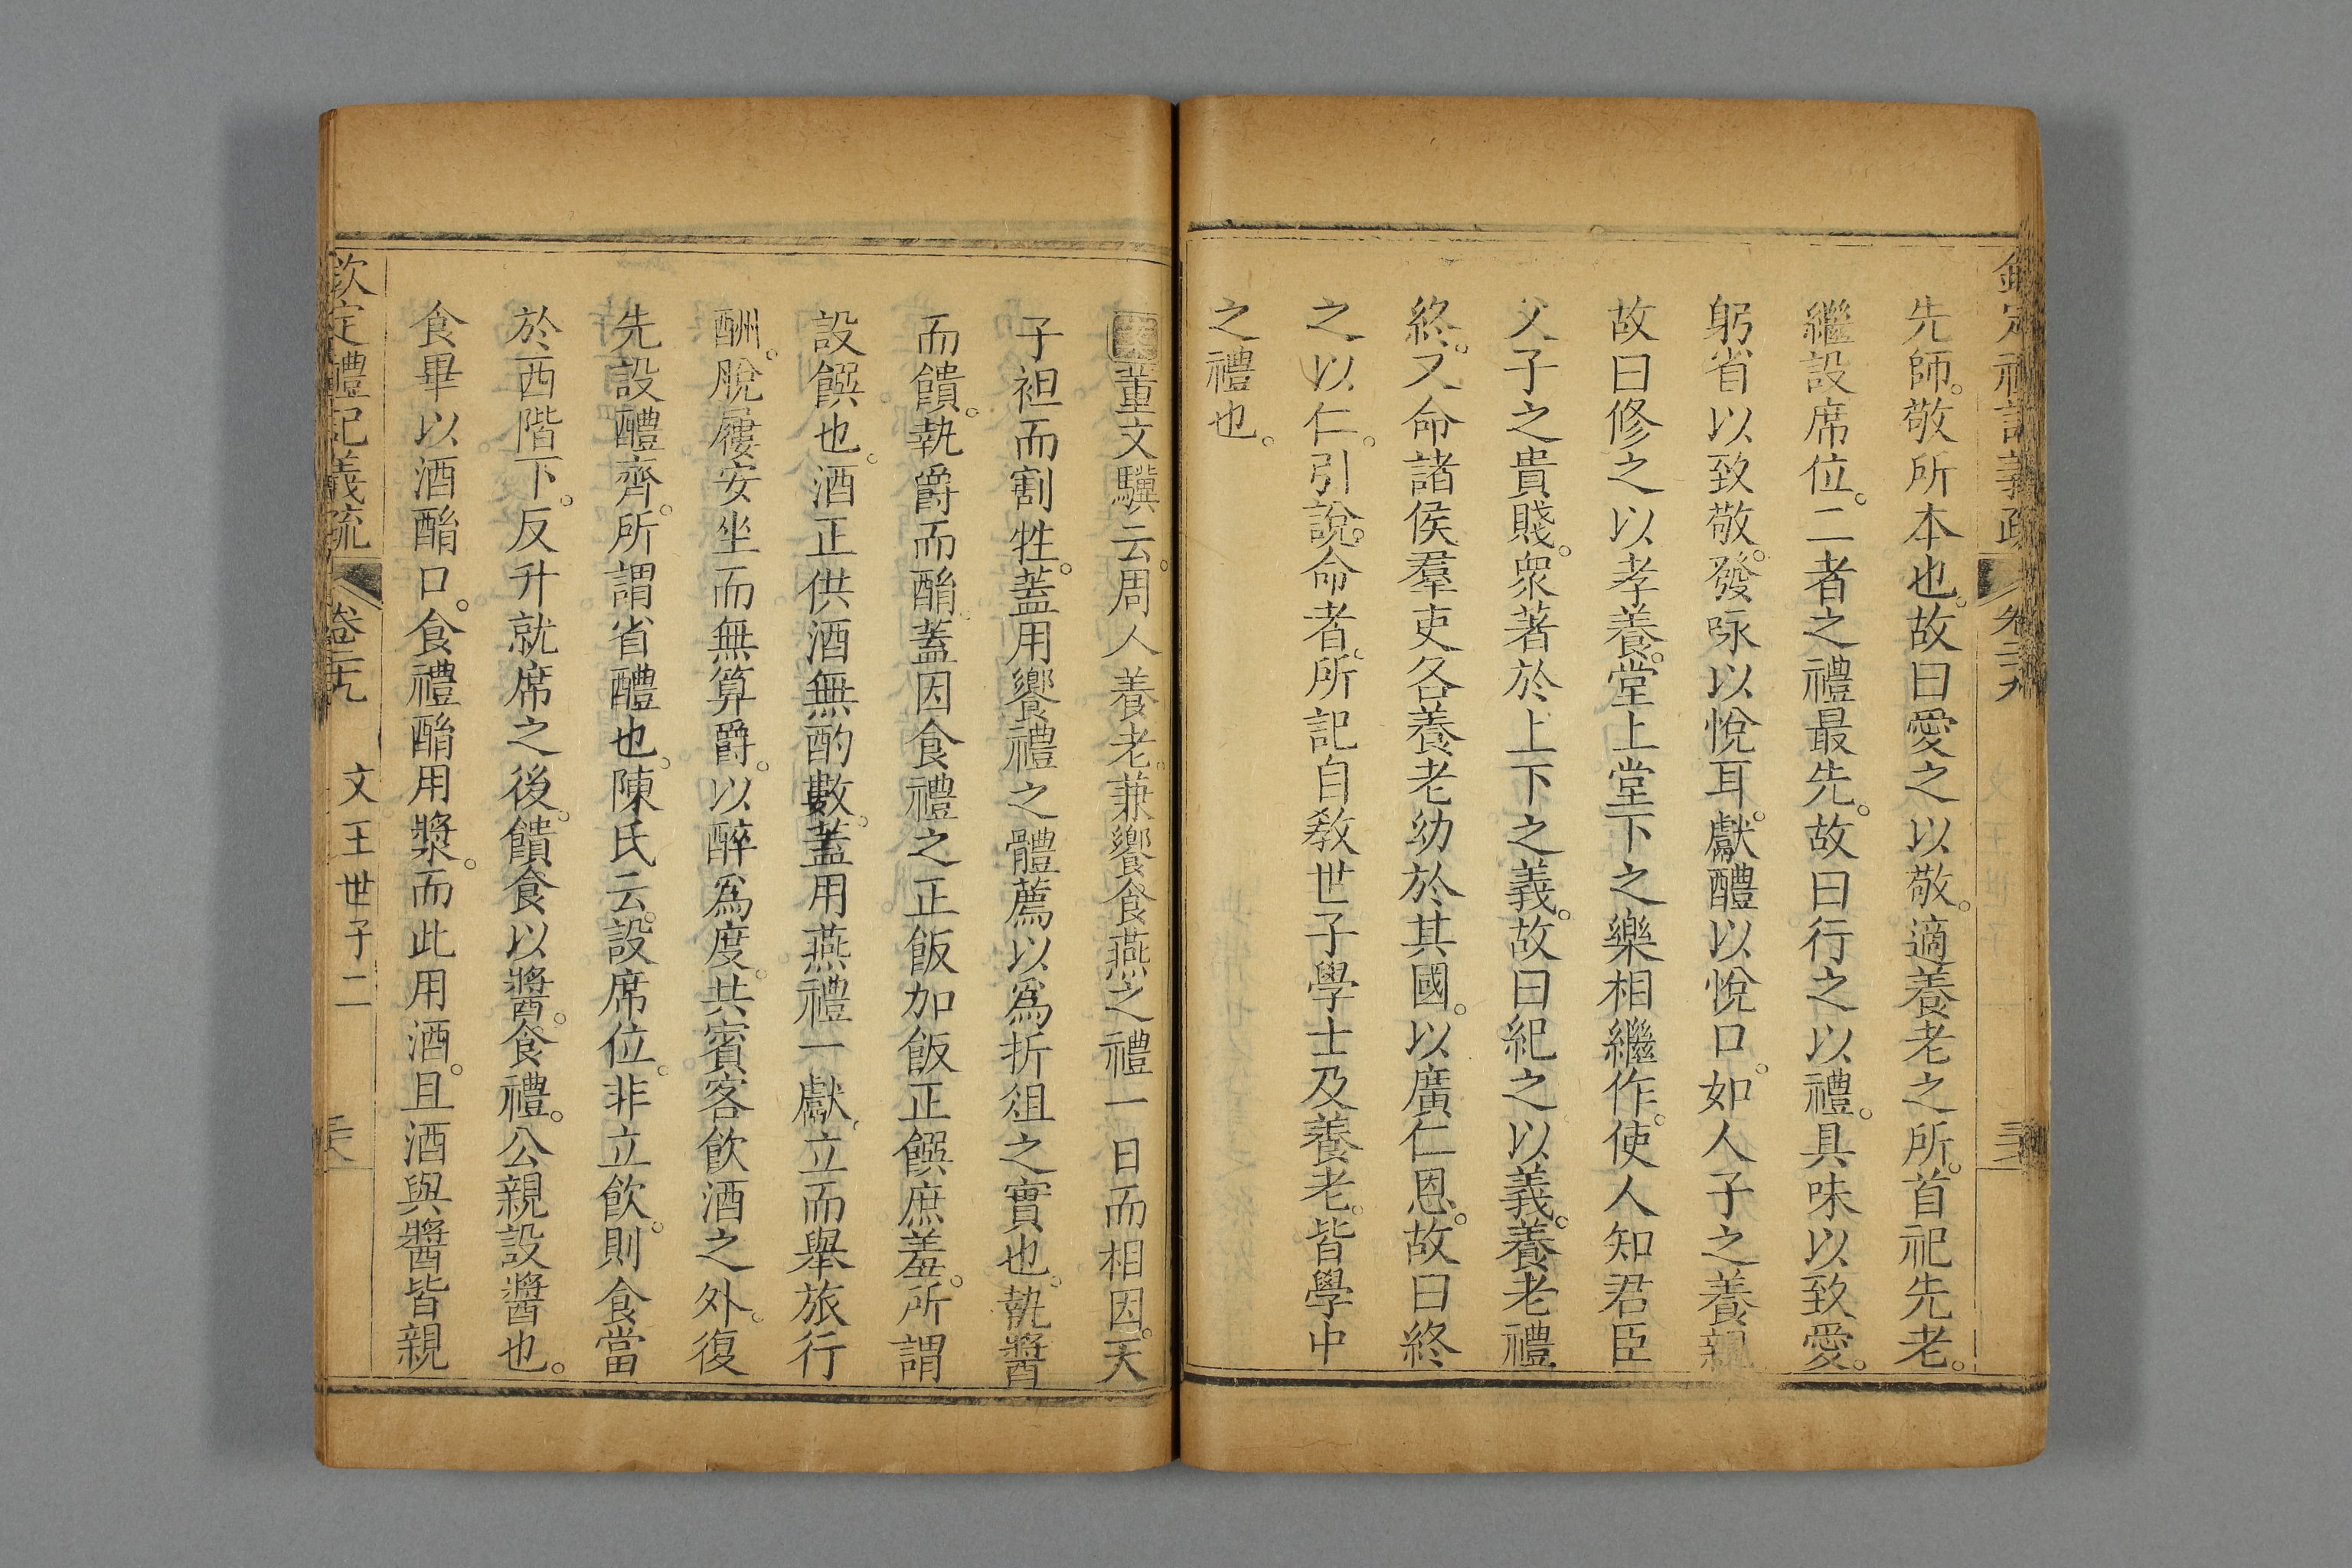 定禮記義疏 卷二十九
先師。敬所本也。故曰愛之以敬。適養老之所。首祀先老。
繼設席位。二者之禮最先。故曰行之以禮。具味以致愛。
躬省以致敬。發咏以悅耳。獻醴以悅口。如人子之養親
故曰修之以孝養。堂上堂下之樂相繼作。使人知君臣
父子之貴賤。衆著於上下之義。故曰紀之以義。養老禮
終。又命諸侯羣吏各養老幼於其國。以廣仁恩。故曰終
之以仁。引說。命者。所記自敎世子學士及養老。皆學中
之禮也。
董文驥云。周人養老。兼饗食燕之禮一日而相因。天
子袒而割牲。蓋用饗禮之體薦以爲折俎之實也。執醬
而饋。執爵而酳。蓋因食禮之正飯加飯正饌庶羞。所謂
設饌也。酒正供酒無酌數。蓋用燕禮一獻立而舉旅行
酬。脫屨安坐而無算爵。以醉爲度。共賓客飲酒之外。復
先設醴齊。所謂省醴也。陳氏云。設席位。非立飲。則食當
於西階下。反升就席之後。饋食以醬。食禮。公親設醬也。
食畢以酒酳口。食禮酳用漿。而此用酒。且酒與醬皆親
欽定禮記義疏 卷二十九 文王世子二